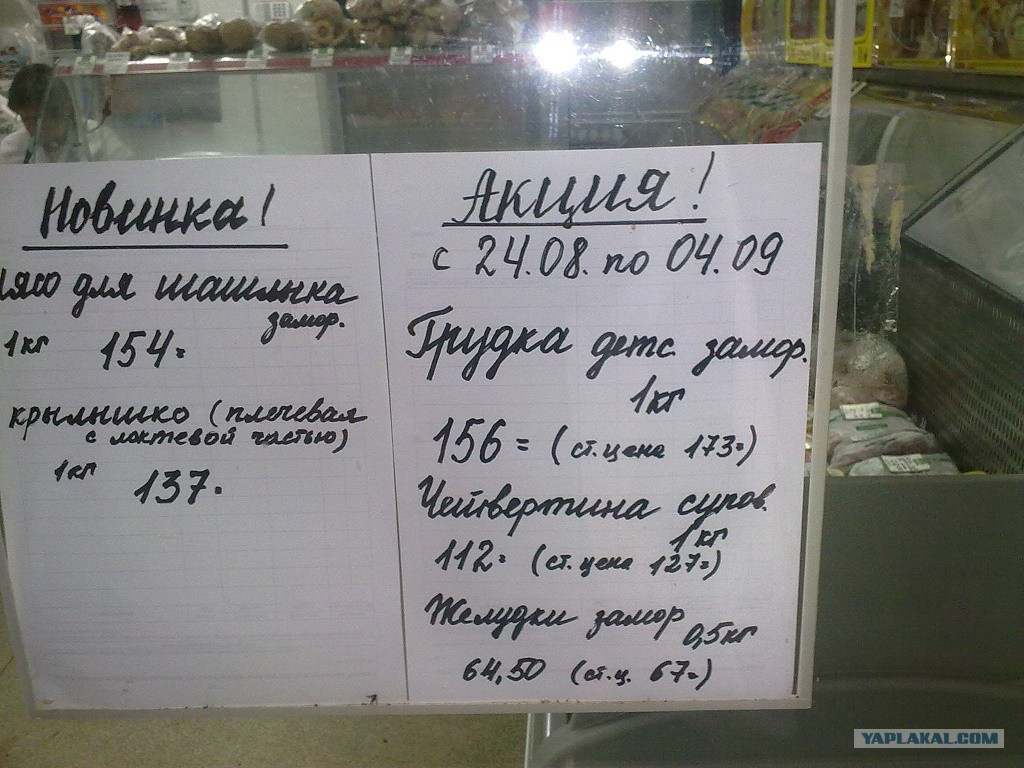 Новинка!
Мясо для шашлыка
замор.
1кг 154=
крылышко (плечевая
с локтевой частью)
1кг 137.
Акция!
с 24.08. по 04.09
Грудка детс. замор.
1кг
156= (ст. цена 173=)
Четвертина супов.
1кг
112= (ст. цена 127=)
Желудки замор
0,5кг
64,50 (ст.ц. 67=)
YAPLAKAL.COM